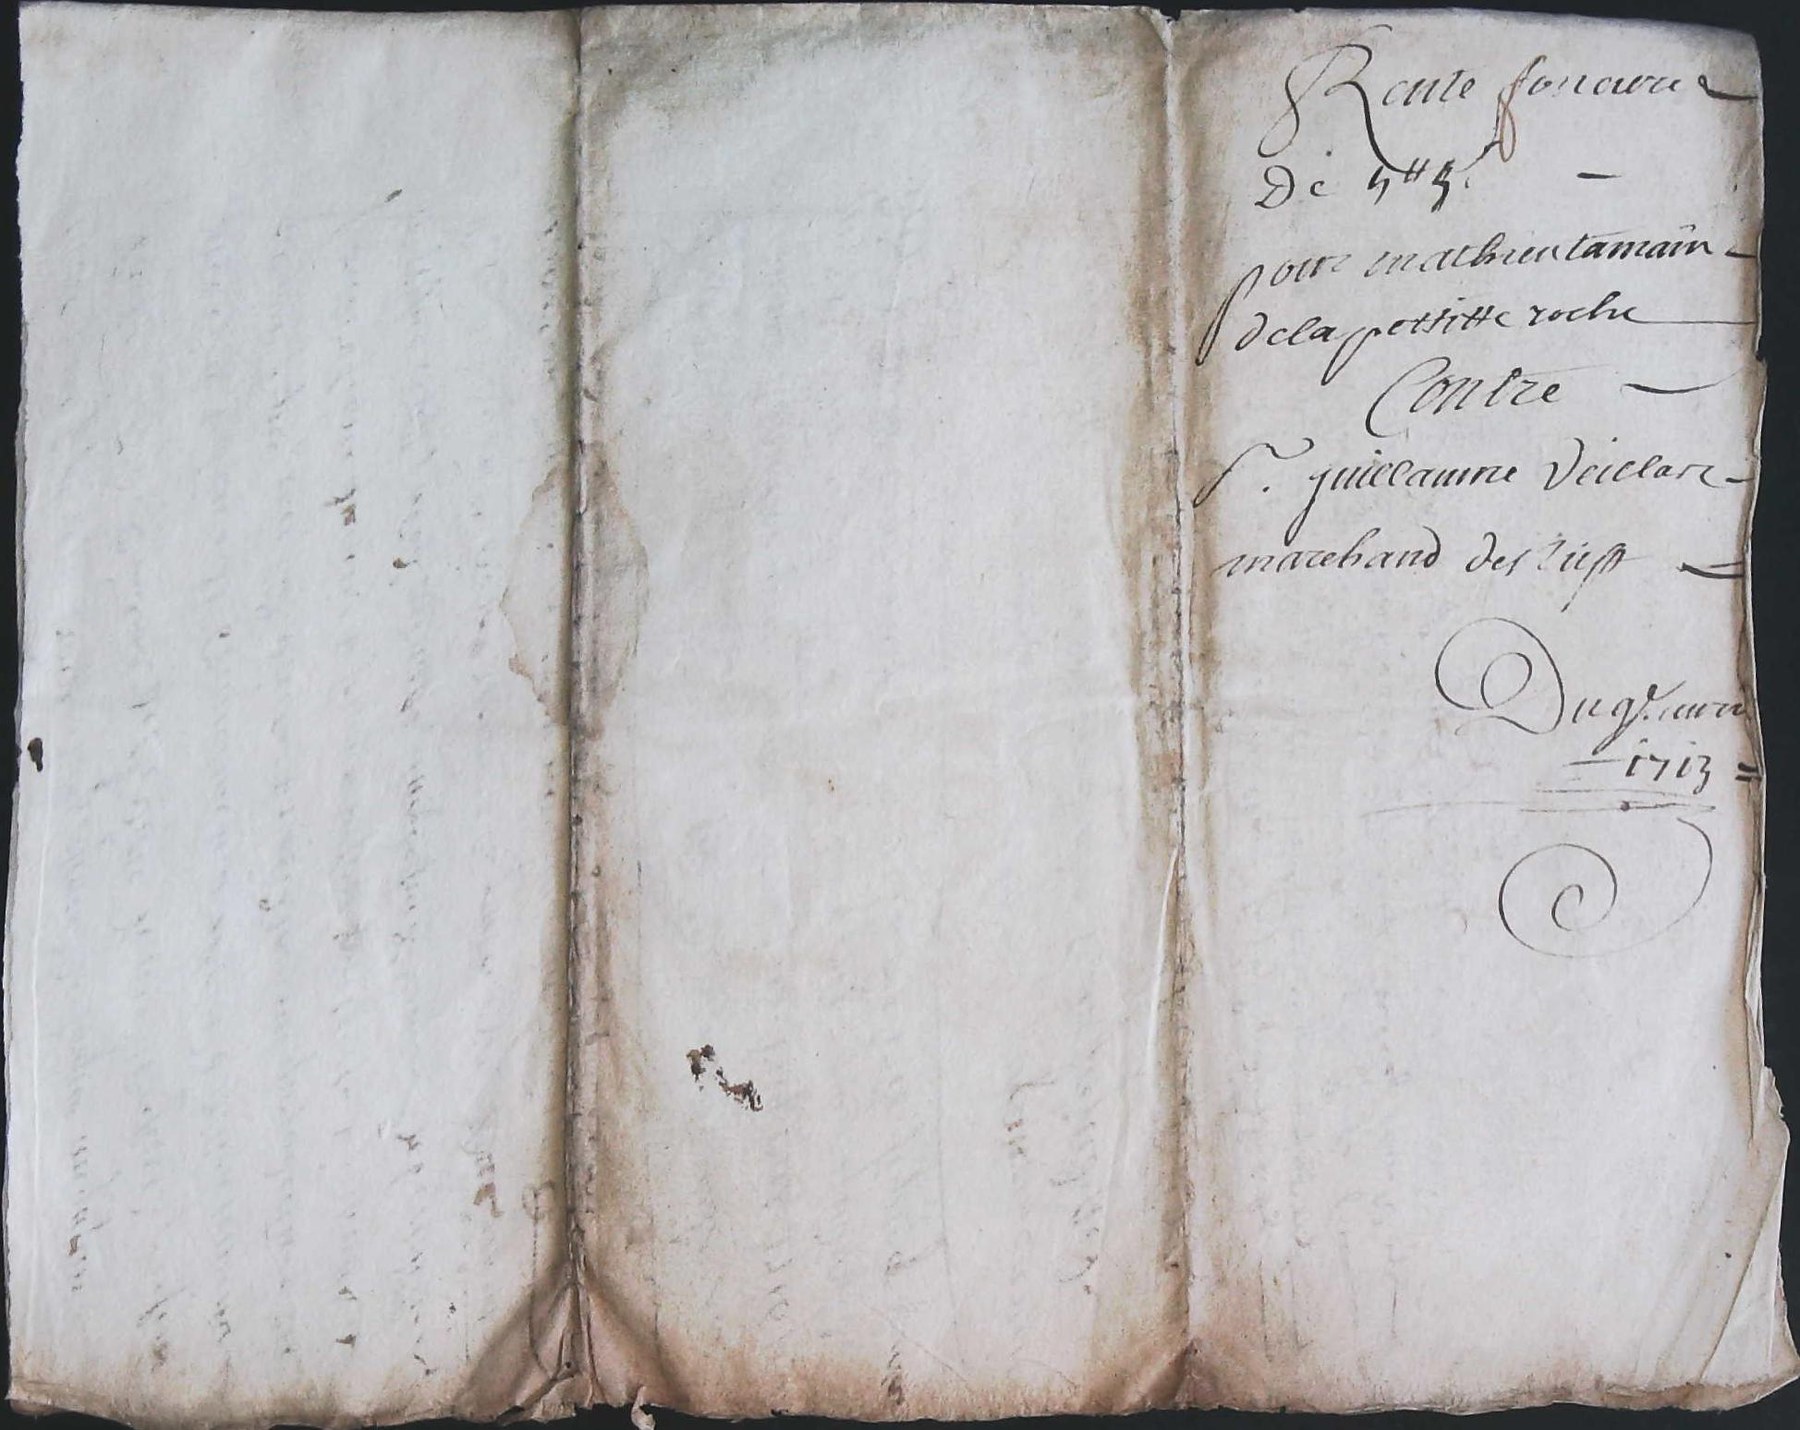 Rente fonciere
De 5tt 5s
pour mathieu tamain
de la pettitte roche
Contre
Sr. guillaume Veiclare
marchand des
Du 9e.
1713